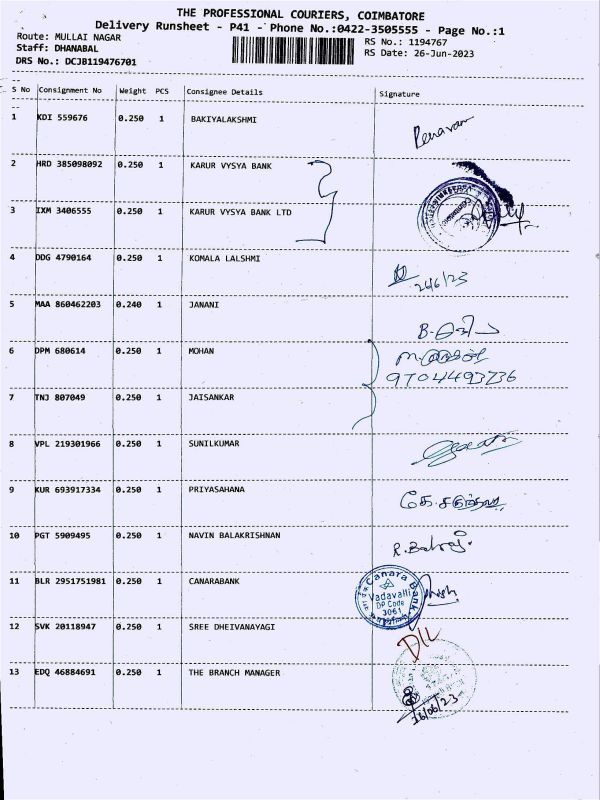 THE PROFESSIONAL COURIERS, COIMBATORE
Delivery Runsheet - P41 - Phone No.:0422-3505555 - Page No.:1
Route: MULLAI NAGAR RS No.: 1194767
Staff: DHANABAL RS Date: 26-Jun-2023
DRS No.: DCJB119476701
S No Consignment No Weight PCS Consignee Details Signature
1 KDI 559676 0.250 1 BAKIYALAKSHMI
2 HRD 385098092 0.250 1 KARUR VYSYA BANK
3 IXM 3406555 0.250 1 KARUR VYSYA BANK LTD
4 DDG 4790164 0.250 1 KOMALA LALSHMI
26/6/23
5 MAA 860462203 0.240 1 JANANI
6 DPM 680614 0.250 1 MOHAN
9704493236
7 TNJ 807049 0.250 1 JAISANKAR
8 VPL 219301966 0.250 1 SUNILKUMAR
9 KUR 693917334 0.250 1 PRIYASAHANA
10 PGT 5909495 0.250 1 NAVIN BALAKRISHNAN
R. Balraj.
11 BLR 2951751981 0.250 1 CANARABANK
Canara Bank
Vadavalli
DP Code
3061
12 SVK 20118947 0.250 1 SREE DHEIVANAYAGI
D/L
13 EDQ 46884691 0.250 1 THE BRANCH MANAGER
26/06/23